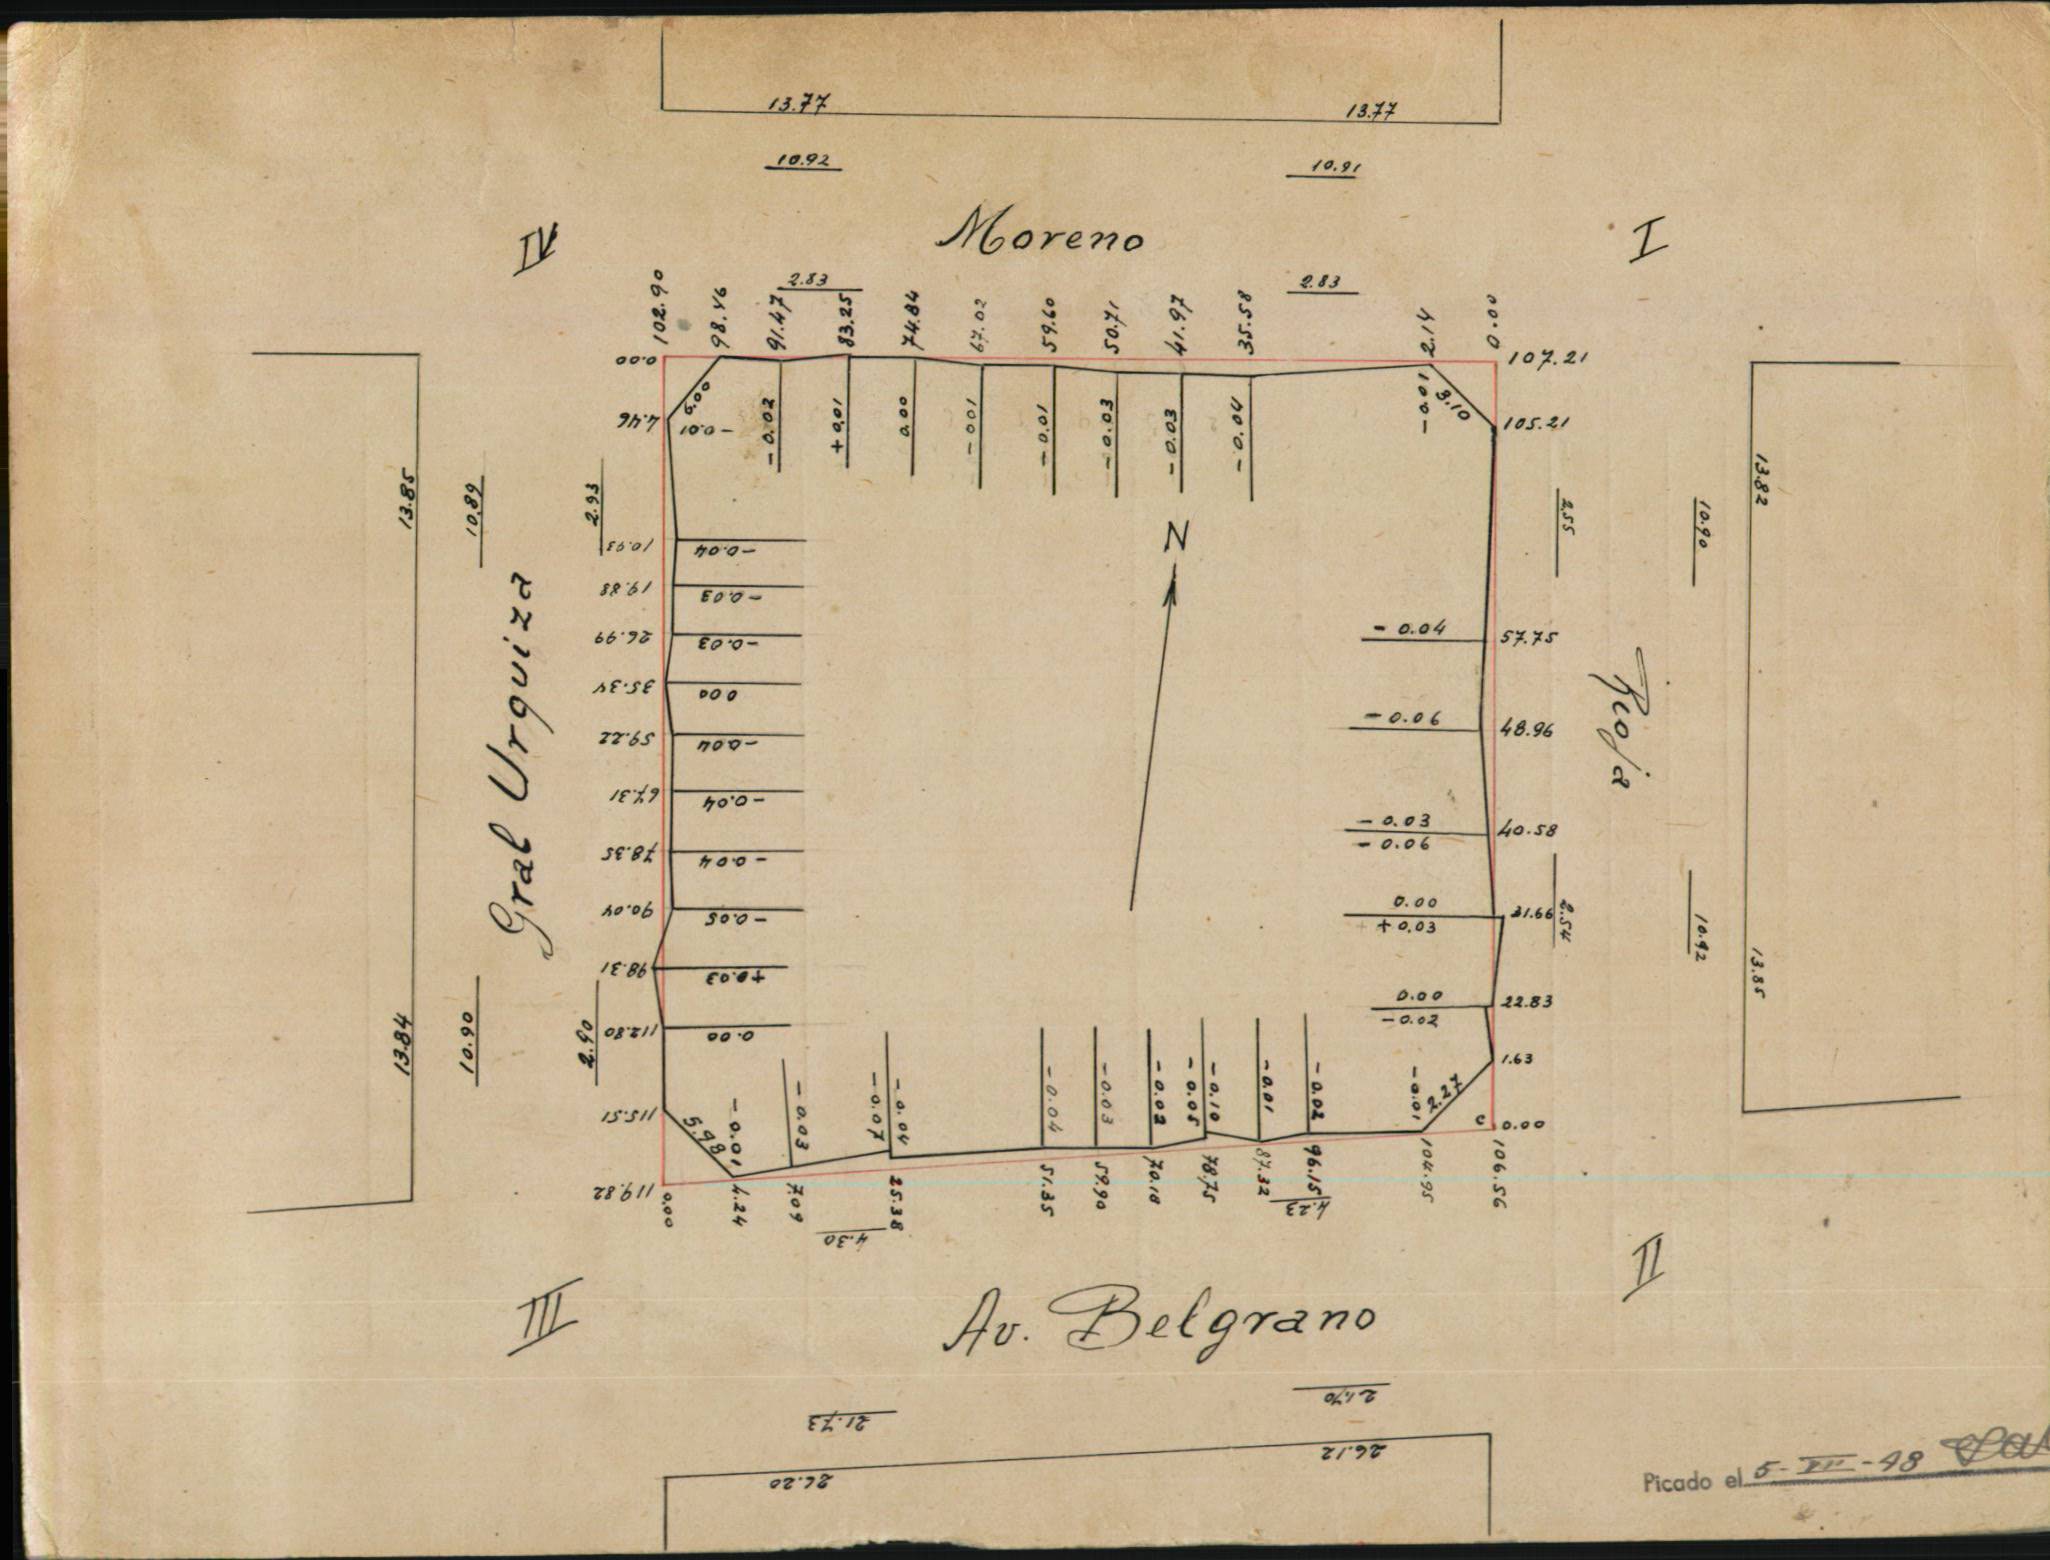 13.77
13.77
10.92
10.91
Moreno
IV
I
2.83
2.83
102.90
98.46
91.47
83.25
74.84
67.02
59.60
50.71
41.97
35.58
2.14
0.00
0.00
107.21
4.46
6.00
-0.01
-0.02
+0.01
0.00
-0.01
-0.01
-0.03
-0.03
-0.04
-0.01
3.10
105.21
13.85
10.89
2.93
10.93
-0.04
19.88
-0.03
26.99
-0.03
35.34
0.00
59.22
-0.04
67.31
-0.04
78.35
-0.04
90.04
-0.05
98.31
+0.03
112.80
0.00
115.51
119.82
Gral Urquiza
13.84
10.90
2.90
N
2.55
10.90
13.82
-0.04
57.75
-0.06
48.96
-0.03
-0.06
40.58
0.00
+0.03
31.66
0.00
-0.02
22.83
1.63
0.00
Rioja
2.54
10.92
13.85
5.98
-0.01
-0.03
-0.07
-0.04
-0.04
-0.03
-0.02
-0.05
-0.10
-0.01
-0.02
-0.01
2.27
c
0.00
4.24
7.09
25.38
51.35
59.90
70.10
78.75
87.32
96.15
104.95
106.56
4.30
4.23
III
II
Av. Belgrano
21.73
21.70
26.20
26.12
Picado el 5-XII-48